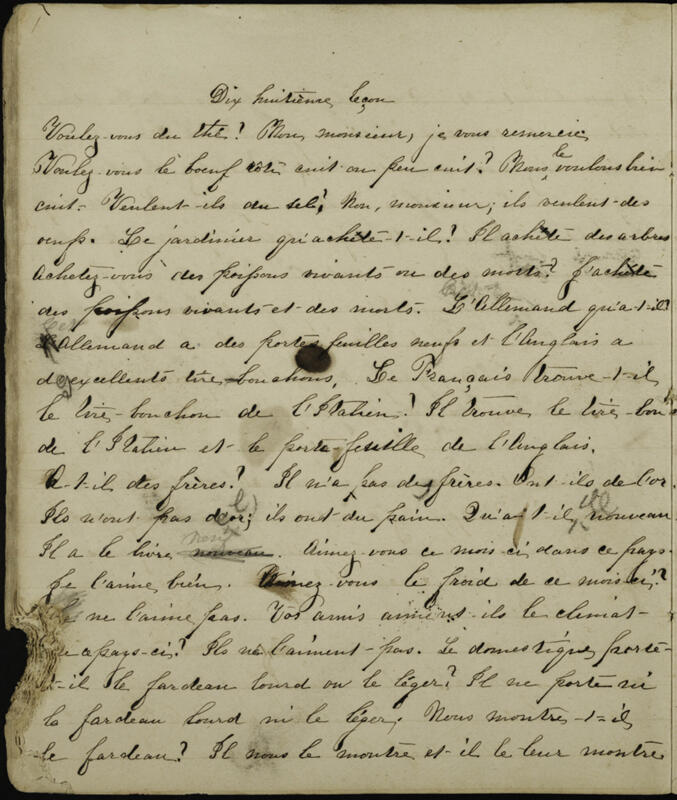 Dix huitième leçon
Voulez-vous du thé? Non, monsieur, je vous remercie
Voulez-vous le boeuf cuit ou peu cuit? Nous le voulons bien
cuit. Veulent-ils du sel? Non, monsieur, ils veulent des
oeufs. Le jardinier qu'achète-t-il? Il achète des arbres
Achetez-vous des poissons vivants ou des morts? J'achète
des poissons vivants et des morts. L'Allemand qu'a-t-il?
L'Allemand a des portefeuilles neufs et l'Anglais a
d'excellents tire-bouchons. Le Français trouve-t-il
le tire-bouchon de l'Italien? Il trouve le tire-bou
de l'Italien et le porte-feuille de l'Anglais.
A-t-il des frères? Il n'a pas de frères. Ont-ils de l'or.
Ils n'ont pas d'or; ils ont du pain. Qu'a-t-il nouveau
Il a le livre nouveau. neuf Aimez-vous ce mois-ci dans ce pays-
Je l'aime bien. Aimez-vous le froid de ce mois-ci?
Je ne l'aime pas. Vos amis aiment-ils le climat
ce pays-ci? Ils ne l'aiment pas. Le domestique porte-
t-il le fardeau lourd ou le léger? Il ne porte ni
le fardeau lourd ni le léger. Nous montre-t-il
le fardeau? Il nous le montre et il le leur montre